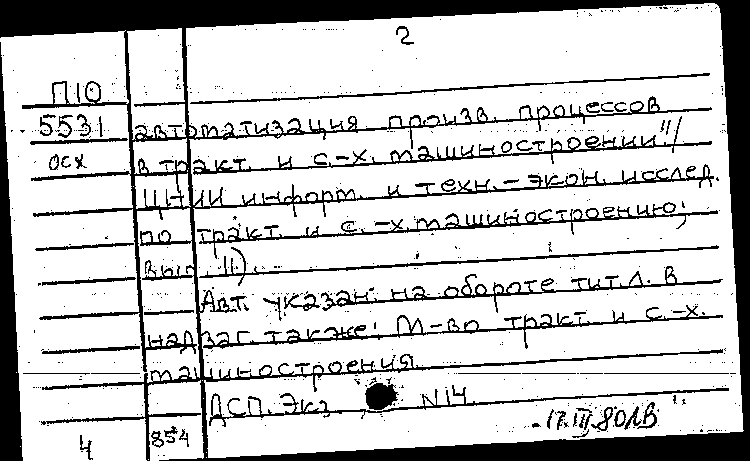 2
П10
5531 автоматизация произв. процессов
осх в тракт. и с.-х. машиностроении"/
ЦНИИ информ. и техн.-экон. исслед.
по тракт. и с.-х. машиностроению;
вып. 11).
Авт. указан: на обороте тит. л. В
надзаг. также: М-во тракт. и с.-х.
машиностроения.
ДСП. Экз. N14.
4 854 17.III.80 ЛВ